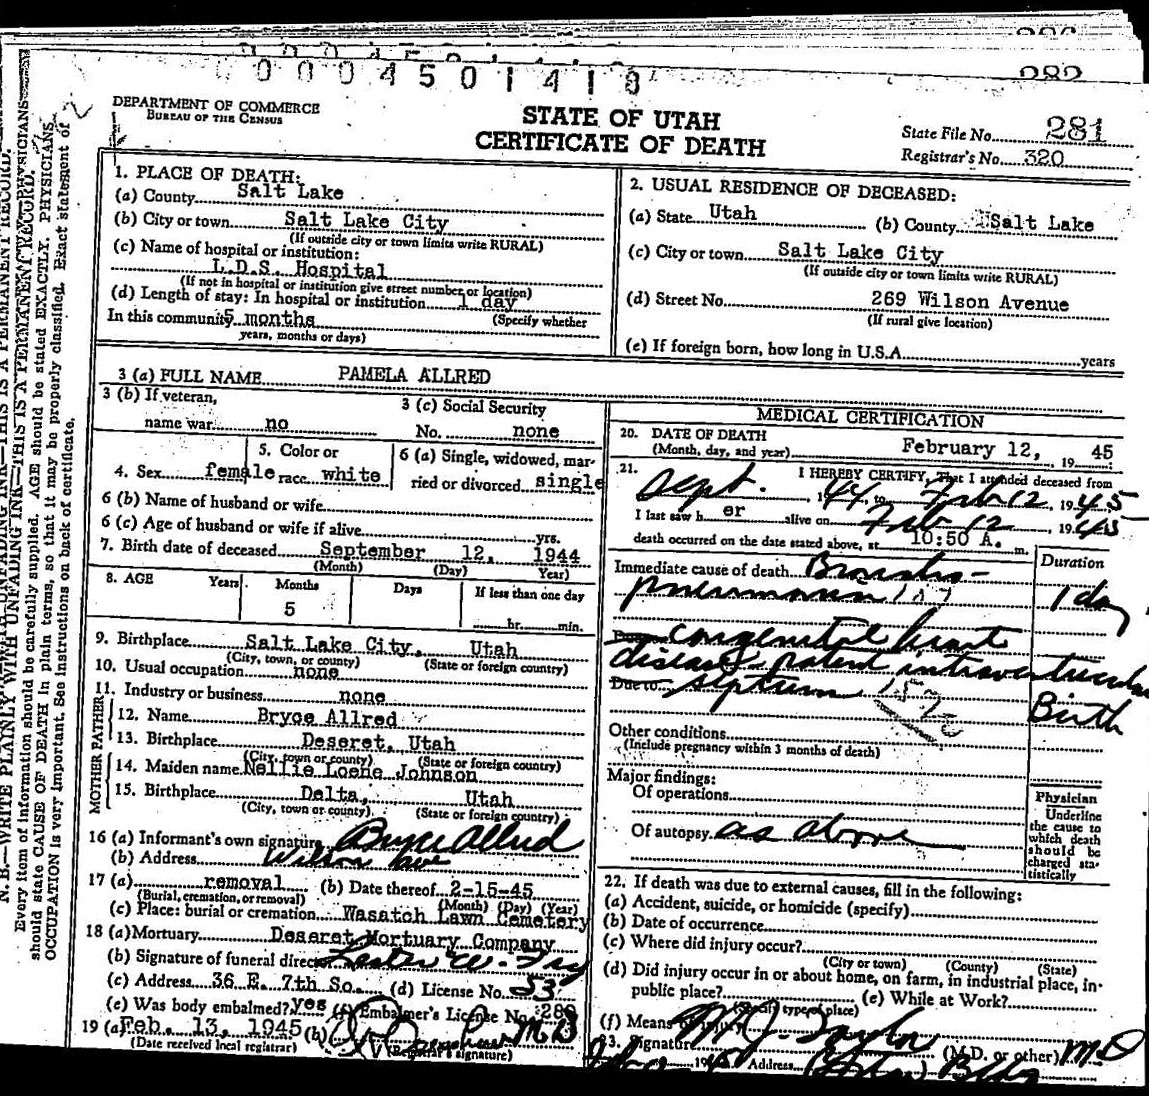 282
0004501418
DEPARTMENT OF COMMERCE
BUREAU OF THE CENSUS
STATE OF UTAH
CERTIFICATE OF DEATH
State File No. 281
Registrar's No. 320
N. B.—WRITE PLAINLY WITH UNFADING INK—THIS IS A PERMANENT RECORD.
Every item of information should be carefully supplied. AGE should be stated EXACTLY. PHYSICIANS
should state CAUSE OF DEATH in plain terms, so that it may be properly classified. Exact statement of
OCCUPATION is very important. See instructions on back of certificate.
1. PLACE OF DEATH:
(a) County Salt Lake
(b) City or town Salt Lake City
(If outside city or town limits write RURAL)
(c) Name of hospital or institution:
L.D.S. Hospital
(If not in hospital or institution give street number or location)
(d) Length of stay: In hospital or institution 1 day
In this community 5 months (Specify whether
years, months or days)
2. USUAL RESIDENCE OF DECEASED:
(a) State Utah (b) County Salt Lake
(c) City or town Salt Lake City
(If outside city or town limits write RURAL)
(d) Street No. 269 Wilson Avenue
(If rural give location)
(e) If foreign born, how long in U.S.A. years
3 (a) FULL NAME PAMELA ALLRED
3 (b) If veteran,
name war no
3 (c) Social Security
No. none
4. Sex female
5. Color or
race white
6 (a) Single, widowed, mar-
ried or divorced single
6 (b) Name of husband or wife
6 (c) Age of husband or wife if alive yrs.
7. Birth date of deceased September 12, 1944
(Month) (Day) Year)
8. AGE Years Months Days If less than one day
5
hr. min.
9. Birthplace Salt Lake City, Utah
(City, town, or county) (State or foreign country)
10. Usual occupation none
11. Industry or business none
FATHER
12. Name Bryce Allred
13. Birthplace Deseret, Utah
(City, town or county) (State or foreign country)
MOTHER
14. Maiden name Nellie Loene Johnson
15. Birthplace Delta, Utah
(City, town or county) (State or foreign country)
16 (a) Informant's own signature Bryce Allred
(b) Address Wilson Ave
17 (a) removal (b) Date thereof 2-15-45
(Burial, cremation, or removal) (Month) (Day) (Year)
(c) Place: burial or cremation Wasatch Lawn Cemetery
18 (a) Mortuary Deseret Mortuary Company
(b) Signature of funeral director Lester W.
(c) Address 36 E. 7th So. (d) License No. 53
(e) Was body embalmed? yes (f) Embalmer's License No.
19 (a) Feb. 13, 1945 (b) M D
(Date received local registrar) (Registrar's signature)
MEDICAL CERTIFICATION
20. DATE OF DEATH
(Month, day, and year) February 12, 19 45
21. I HEREBY CERTIFY, That I attended deceased from
Sept. 1944 to Feb 12, 1945
I last saw her alive on Feb 12 1945
death occurred on the date stated above, at 10:50 A. m.
Duration
Immediate cause of death Broncho-
pneumonia 107 1 day
congenital heart
disease - patent intraventricular
Due to septum Birth
Other conditions
(Include pregnancy within 3 months of death)
Major findings:
Of operations
Of autopsy as above
Physician
Underline
the cause to
which death
should be
charged sta-
tistically
22. If death was due to external causes, fill in the following:
(a) Accident, suicide, or homicide (specify)
(b) Date of occurrence
(c) Where did injury occur?
(City or town) (County) (State)
(d) Did injury occur in or about home, on farm, in industrial place, in-
public place? (e) While at Work?
(Specify type of place)
(f) Means of injury
23. Signature M J Taylor (M.D. or other) MD
Address Bldg